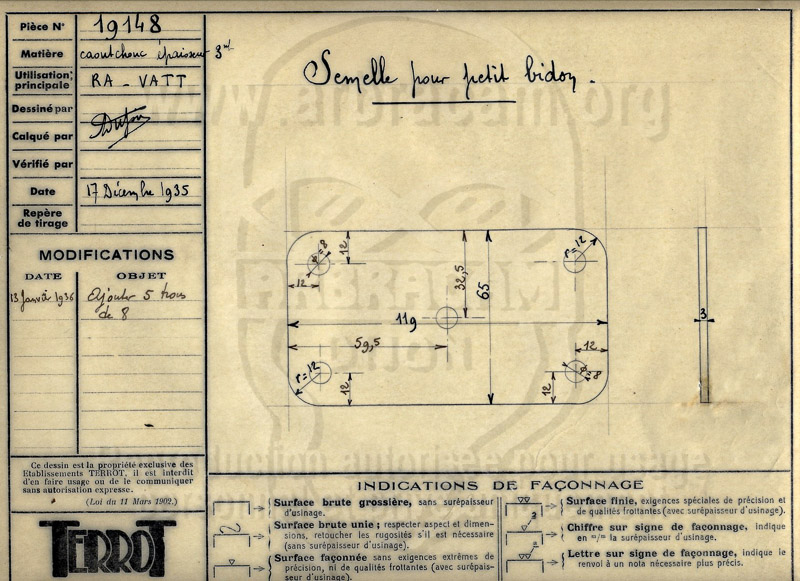 Pièce N° 19148
Matière caoutchouc épaisseur 3
Utilisation principale RA - VATT
Dessiné par
Calqué par
Vérifié par
Date 17 Décembre 1935
Repère de tirage
MODIFICATIONS
DATE OBJET
13 Janvier 1936 Ajouter 5 trous
de 8
Ce dessin est la propriété exclusive des
Etablissements TERROT, il est interdit
d'en faire usage ou de le communiquer
sans autorisation expresse.
(Loi du 11 Mars 1902.)
TERROT
Semelle pour petit bidon.
www.arbracam.org
ARBRACAM
12
ø=8
12
32,5
65
r=12
119
59,5
12
r=12
12
12
ø=8
3
INDICATIONS DE FAÇONNAGE
Surface brute grossière, sans surépaisseur
d'usinage.
Surface brute unie; respecter aspect et dimen-
sions, retoucher les rugosités s'il est nécessaire
(sans surépaisseur d'usinage).
Surface façonnée sans exigences extrêmes de
précision, ni de qualités frottantes (avec surépais-
seur d'usinage).
Surface finie, exigences spéciales de précision et
de qualités frottantes (avec surépaisseur d'usinage).
Chiffre sur signe de façonnage, indique
en m/m la surépaisseur d'usinage.
Lettre sur signe de façonnage, indique le
renvoi à un nota nécessaire plus précis.